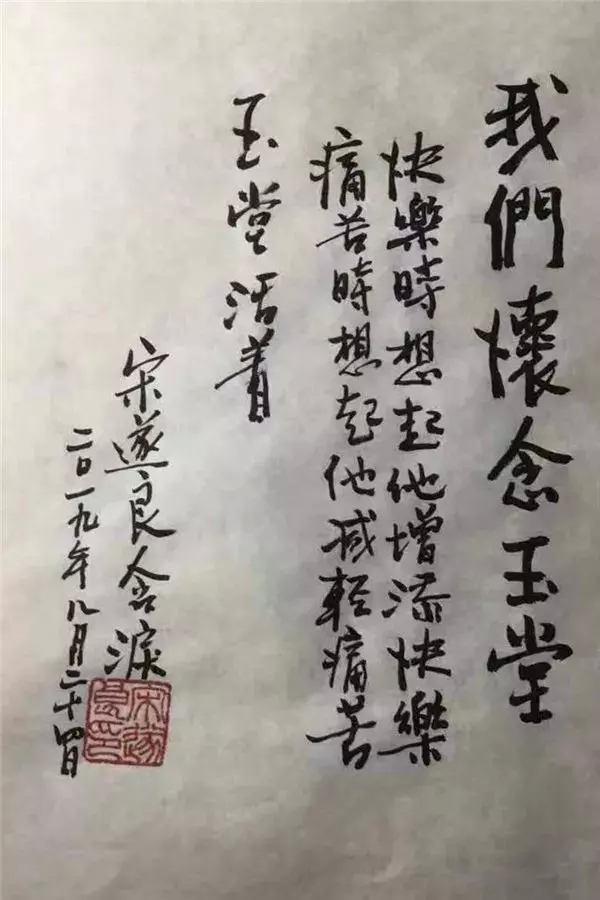 我們懷念玉堂
快樂時想起他增添快樂
痛苦時想起他减輕痛苦
玉堂活着
宋遂良含淚
二〇一九年八月二十四日
宋遂良印